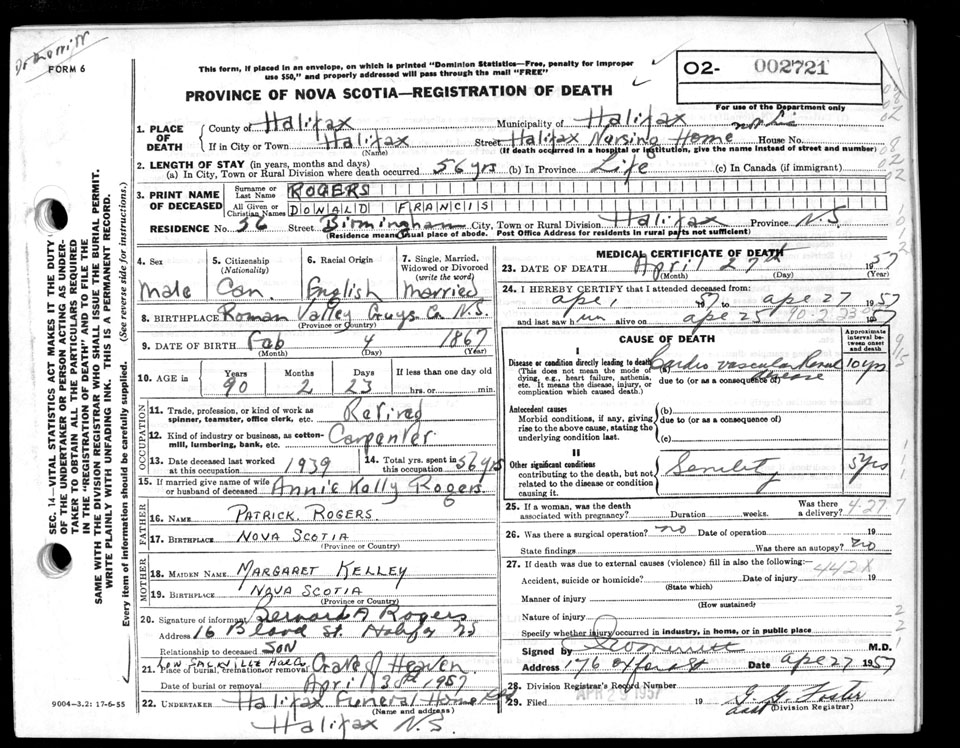 Dr Merritt
FORM 6
This form, if placed in an envelope, on which is printed "Dominion Statistics—Free, penalty for improper
use $50," and properly addressed will pass through the mail "FREE"
PROVINCE OF NOVA SCOTIA—REGISTRATION OF DEATH
O2- 002721
For use of the Department only
1. PLACE OF DEATH
County of Halifax Municipality of Halifax
If in City or Town Halifax Street Halifax Nursing Home House No.
(Name) (If death occurred in a hospital or institution, give the name instead of street and number)
2. LENGTH OF STAY (in years, months and days)
(a) In City, Town or Rural Division where death occurred 56 yrs (b) In Province Life (c) In Canada (if immigrant)
3. PRINT NAME OF DECEASED
Surname or Last Name ROGERS
All Given or Christian Names DONALD FRANCIS
RESIDENCE No. 56 Street Birmingham City, Town or Rural Division Halifax Province N.S.
(Residence means usual place of abode. Post Office Address for residents in rural parts not sufficient)
4. Sex
Male
5. Citizenship (Nationality)
Can.
6. Racial Origin
English
7. Single, Married, Widowed or Divorced (write the word)
Married
8. BIRTHPLACE Roman Valley Guys Co N.S.
(Province or Country)
9. DATE OF BIRTH Feb 4 1867
(Month) (Day) (Year)
10. AGE in Years Months Days If less than one day old
90 2 23 hrs. or min.
OCCUPATION
11. Trade, profession, or kind of work as spinner, teamster, office clerk, etc. Retired
12. Kind of industry or business, as cotton-mill, lumbering, bank, etc. Carpenter
13. Date deceased last worked at this occupation 1939
14. Total yrs. spent in this occupation 56 yrs
15. If married give name of wife or husband of deceased Annie Kelly Rogers
FATHER
16. NAME PATRICK ROGERS.
17. BIRTHPLACE NOVA SCOTIA
(Province or Country)
MOTHER
18. MAIDEN NAME MARGARET KELLEY
19. BIRTHPLACE NOVA SCOTIA
(Province or Country)
20. Signature of informant Bernard A Rogers
Address 16 Blood St. Halifax NS
Relationship to deceased SON
21. Place of burial, cremation or removal LOW SACKVILLE Gate of Heaven
Date of burial or removal April 30th 1957
22. UNDERTAKER Halifax Funeral Home
(Name and address)
Halifax N.S.
9004-3.2: 17-6-55
MEDICAL CERTIFICATE OF DEATH
23. DATE OF DEATH April 27th 1957
(Month) (Day) (Year)
24. I HEREBY CERTIFY that I attended deceased from:
ape 1 1957 to ape 27 1957
and last saw him alive on ape 25 1957
90-2-23
CAUSE OF DEATH
Approximate interval between onset and death
I
Disease or condition directly leading to death
(This does not mean the mode of dying, e.g., heart failure, asthenia, etc. It means the disease, injury, or complication which caused death.)
(a) Cardio vascular Renal disease 10 yrs
due to (or as a consequence of)
Antecedent causes
Morbid conditions, if any, giving rise to the above cause, stating the underlying condition last.
(b)
due to (or as a consequence of)
(c)
II
Other significant conditions
contributing to the death, but not related to the disease or condition causing it.
Senility 5 yrs
25. If a woman, was the death associated with pregnancy? Duration weeks. Was there a delivery?
4-27-7
26. Was there a surgical operation? no Date of operation 19
State findings Was there an autopsy? no
27. If death was due to external causes (violence) fill in also the following:—
442X
Accident, suicide or homicide? Date of injury 19
(State which)
Manner of injury
(How sustained)
Nature of injury
Specify whether injury occurred in industry, in home, or in public place
Signed by Merritt M.D.
Address 176 Oxford St Date ape 27 1957
28. Division Registrar's Record Number
APR 29 1957
29. Filed 19 G. G. Foster
(Division Registrar)
SEC. 14—VITAL STATISTICS ACT MAKES IT THE DUTY
OF THE UNDERTAKER OR PERSON ACTING AS UNDER-
TAKER TO OBTAIN ALL THE PARTICULARS REQUIRED
IN THE "REGISTRATION OF DEATH" AND TO FILE THE
SAME WITH THE DIVISION REGISTRAR WHO SHALL ISSUE THE BURIAL PERMIT.
WRITE PLAINLY WITH UNFADING INK. THIS IS A PERMANENT RECORD.
Every item of information should be carefully supplied. (See reverse side for instructions.)